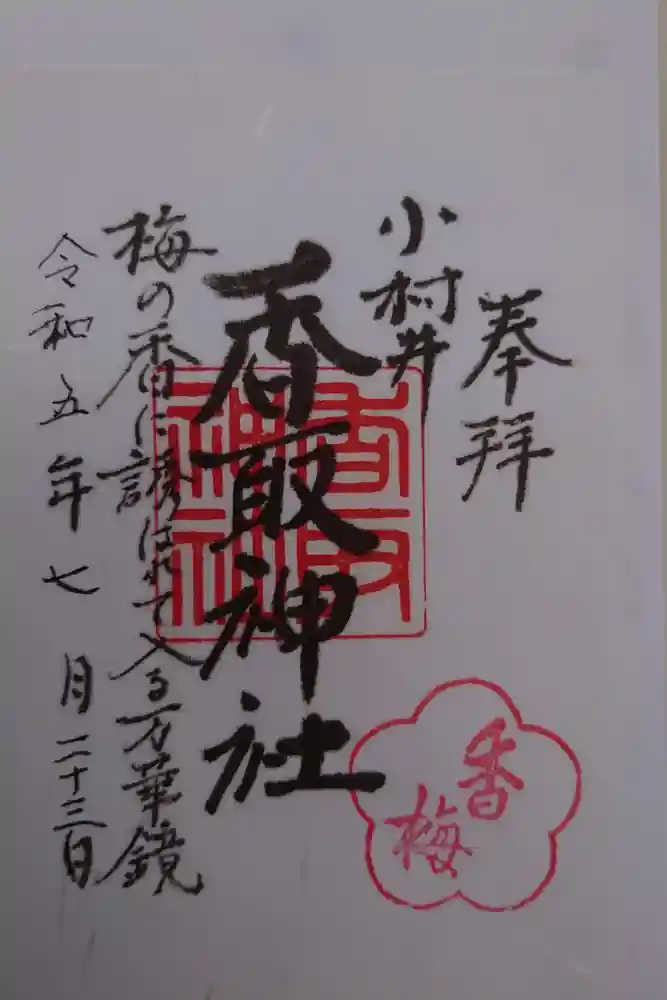 奉拝
小村井
香取神社
梅の香に誘はれて入る万華鏡
令和五年七月二十三日
香取
神社
香梅